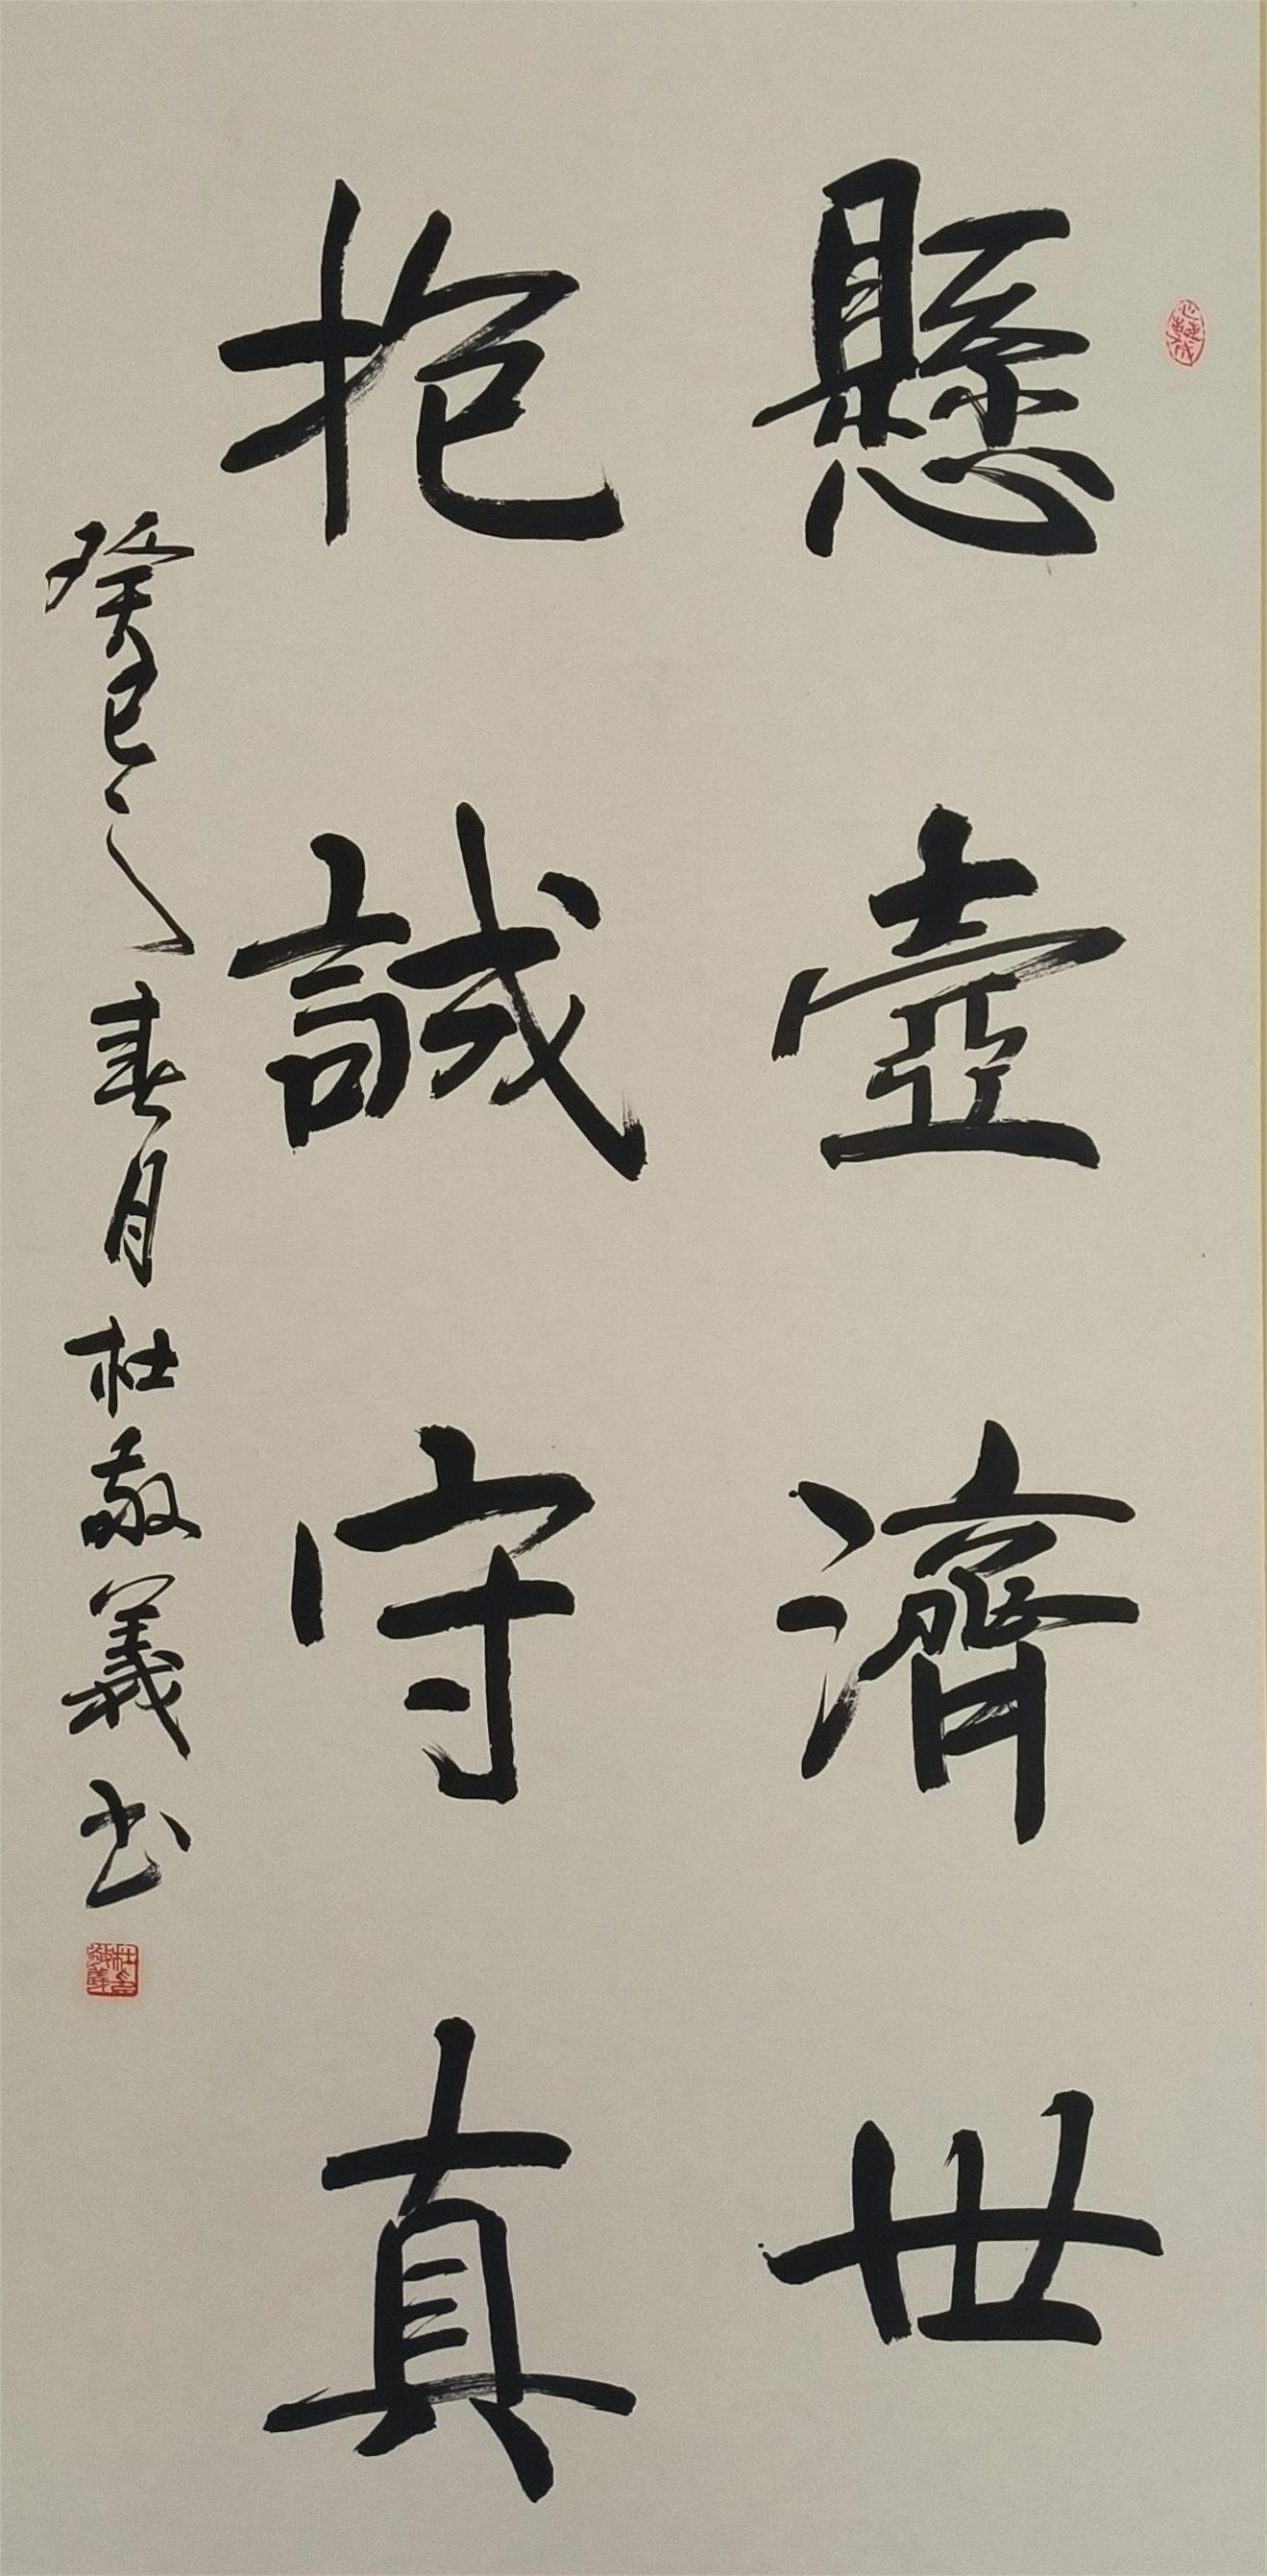 懸壺濟世
抱誠守真
癸巳之春月杜敬義书